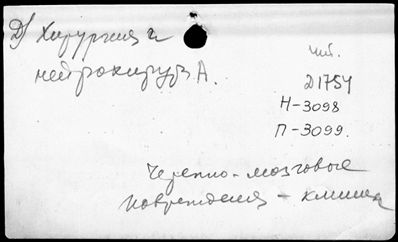 Д/ Хирургия и
нейрохирур А.
чит.
Д1754
Н-3098
П-3099.
Черепно-мозговые
повреждения - клиника